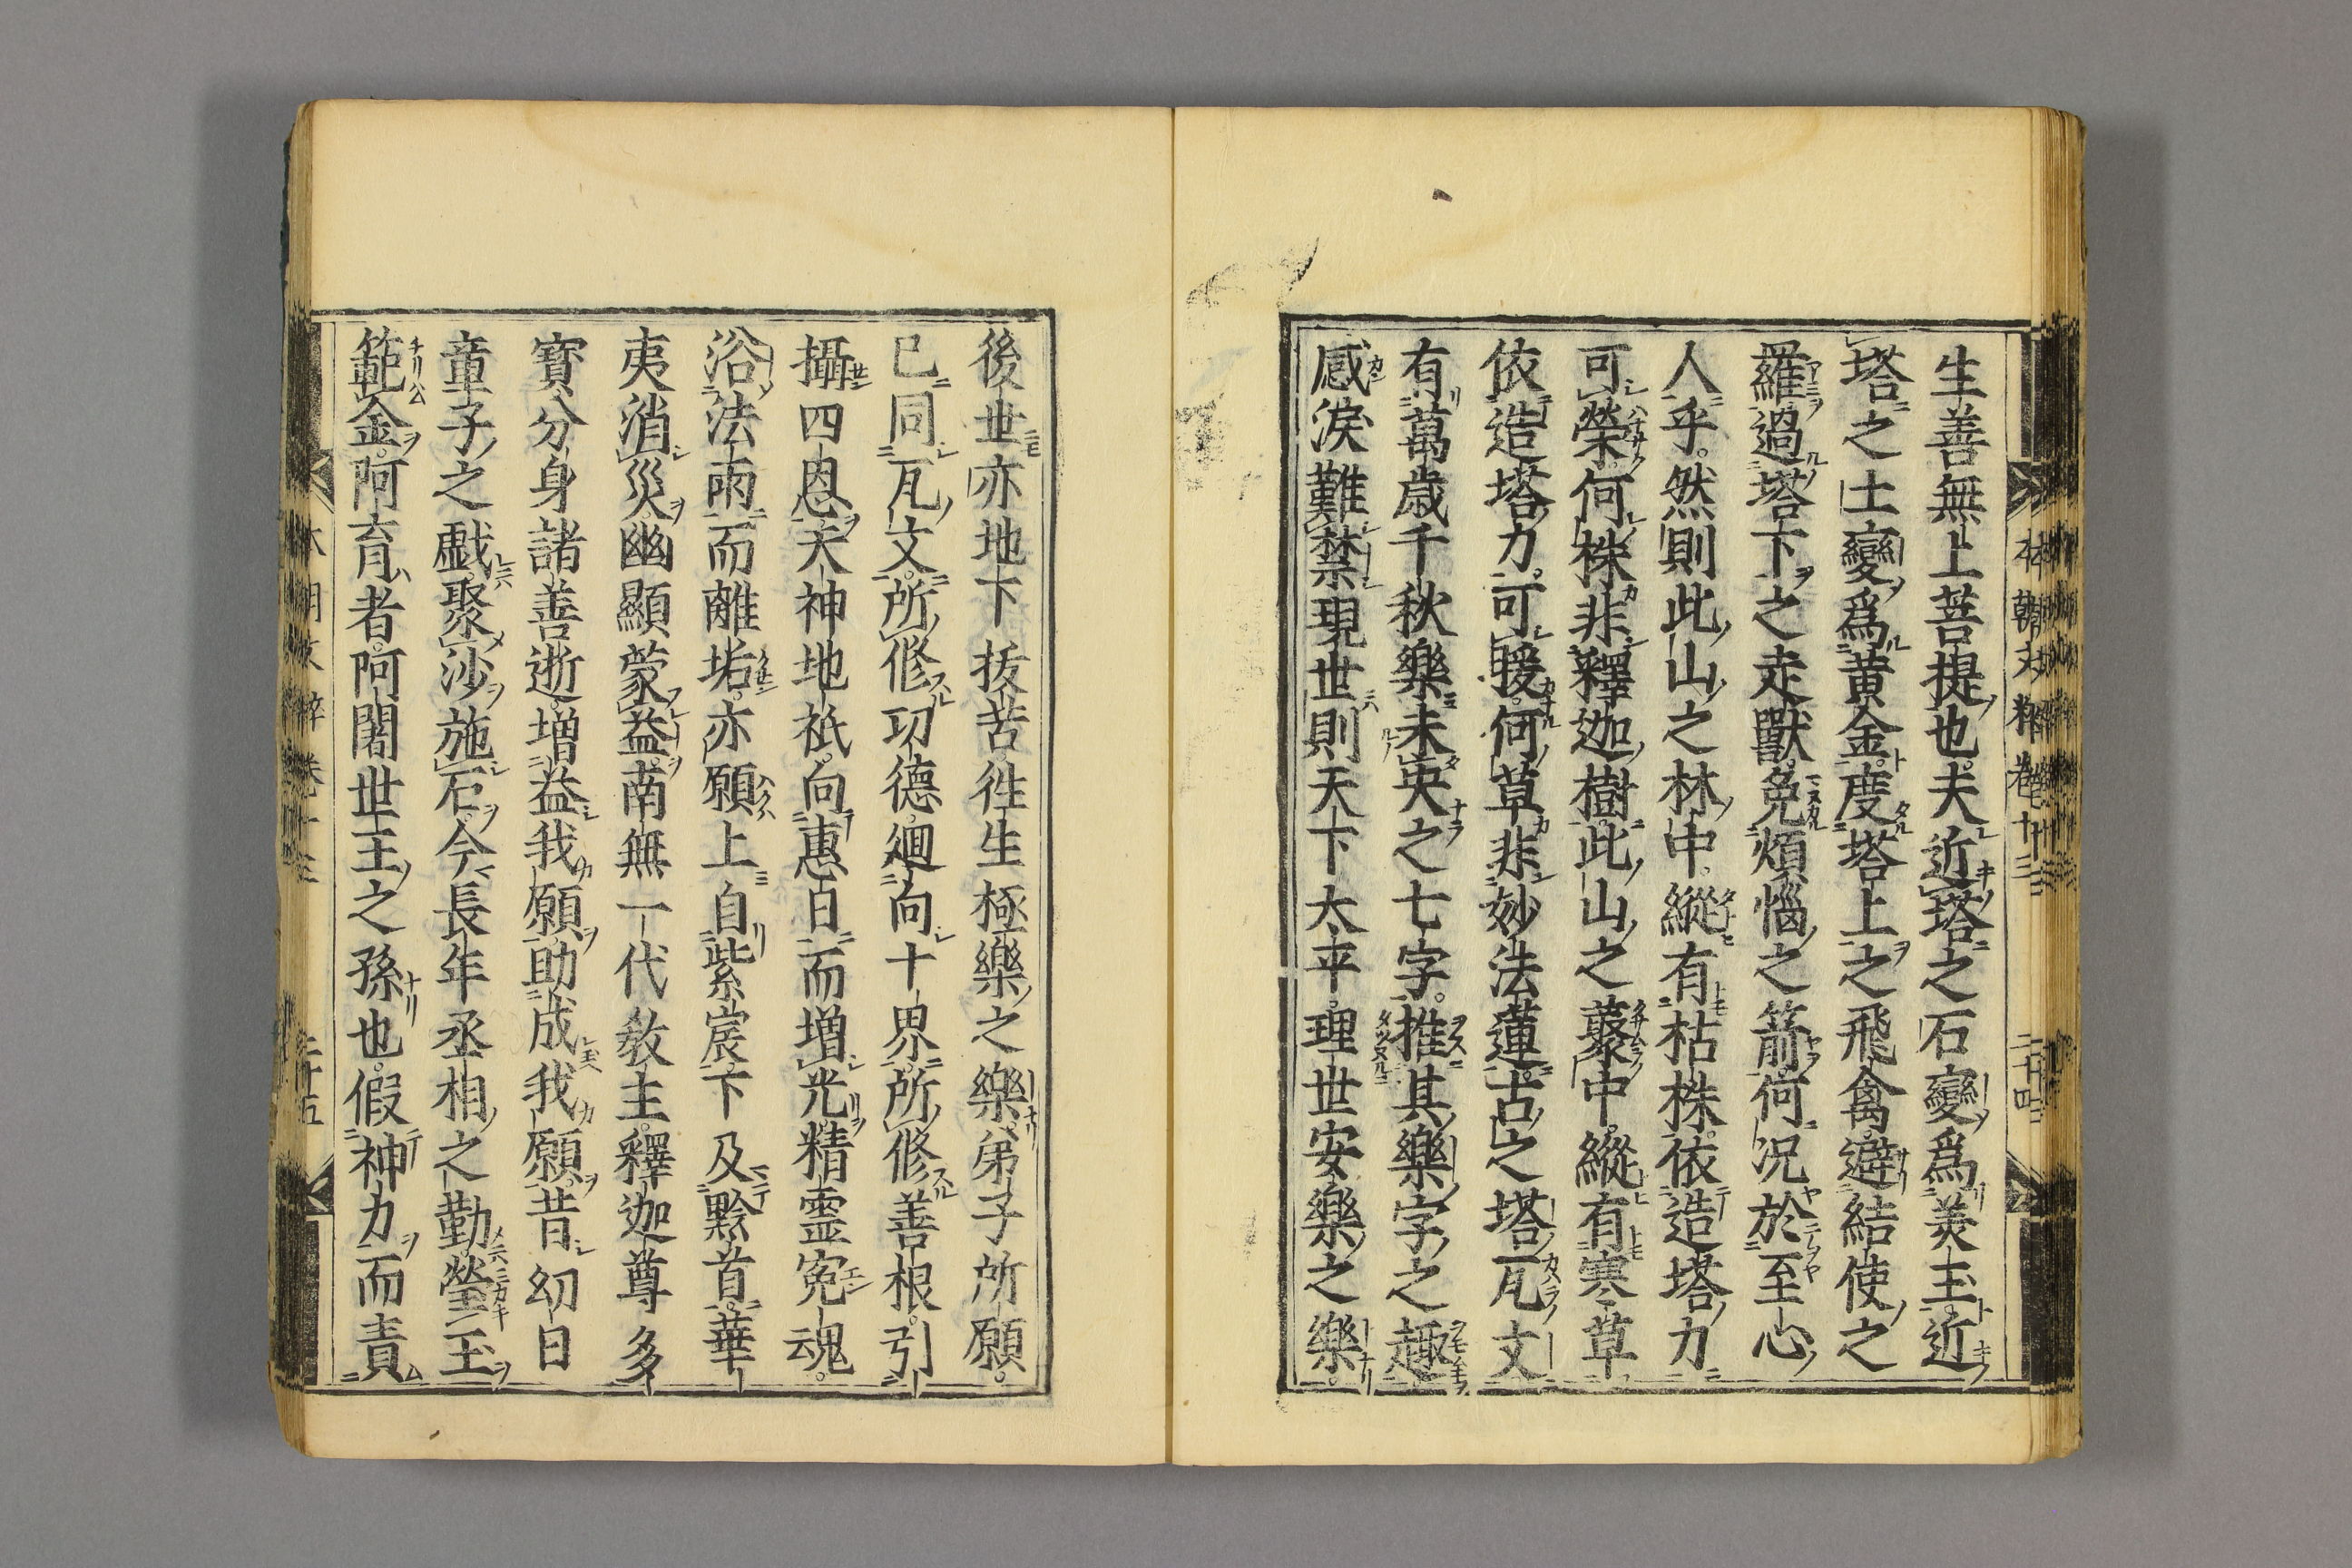 生善無上菩提也夫近塔之石變爲美玉近
塔之土變爲黄金度塔上之飛禽避結使之
羅過塔下之走獸免煩惱之箭何況於至心
人乎。然則此山之林中縱有枯株依造塔力
可榮何株非釋迦樹此山之藂中縱有寒草
依造塔力可晙何草非妙法蓮古之塔瓦文
有萬歳千秋樂未央之七字。推其樂字之趣
感涙難禁現世則天下太平理世安樂之樂。
後世亦地下抜苦。徃生極樂之樂。弟子所願。
已同瓦文。所修功德。廻向十界。所修善根。引
攝四恩天神地祇。向惠日而增光。精霊寃魂。
浴法雨而離垢。亦願上自紫宸下及黔首。華
夷消災。幽顯蒙益。南無一代教主。釋迦尊多
寳分身諸善逝。増益我願助成我願。昔幻日
童子之戯。聚沙施石。今長年丞相之勤瑩玉
範金。阿育者。阿闍世王之孫也。假神力而責
本朝文粹卷十三 二十四
本朝文粹卷十三 二十五